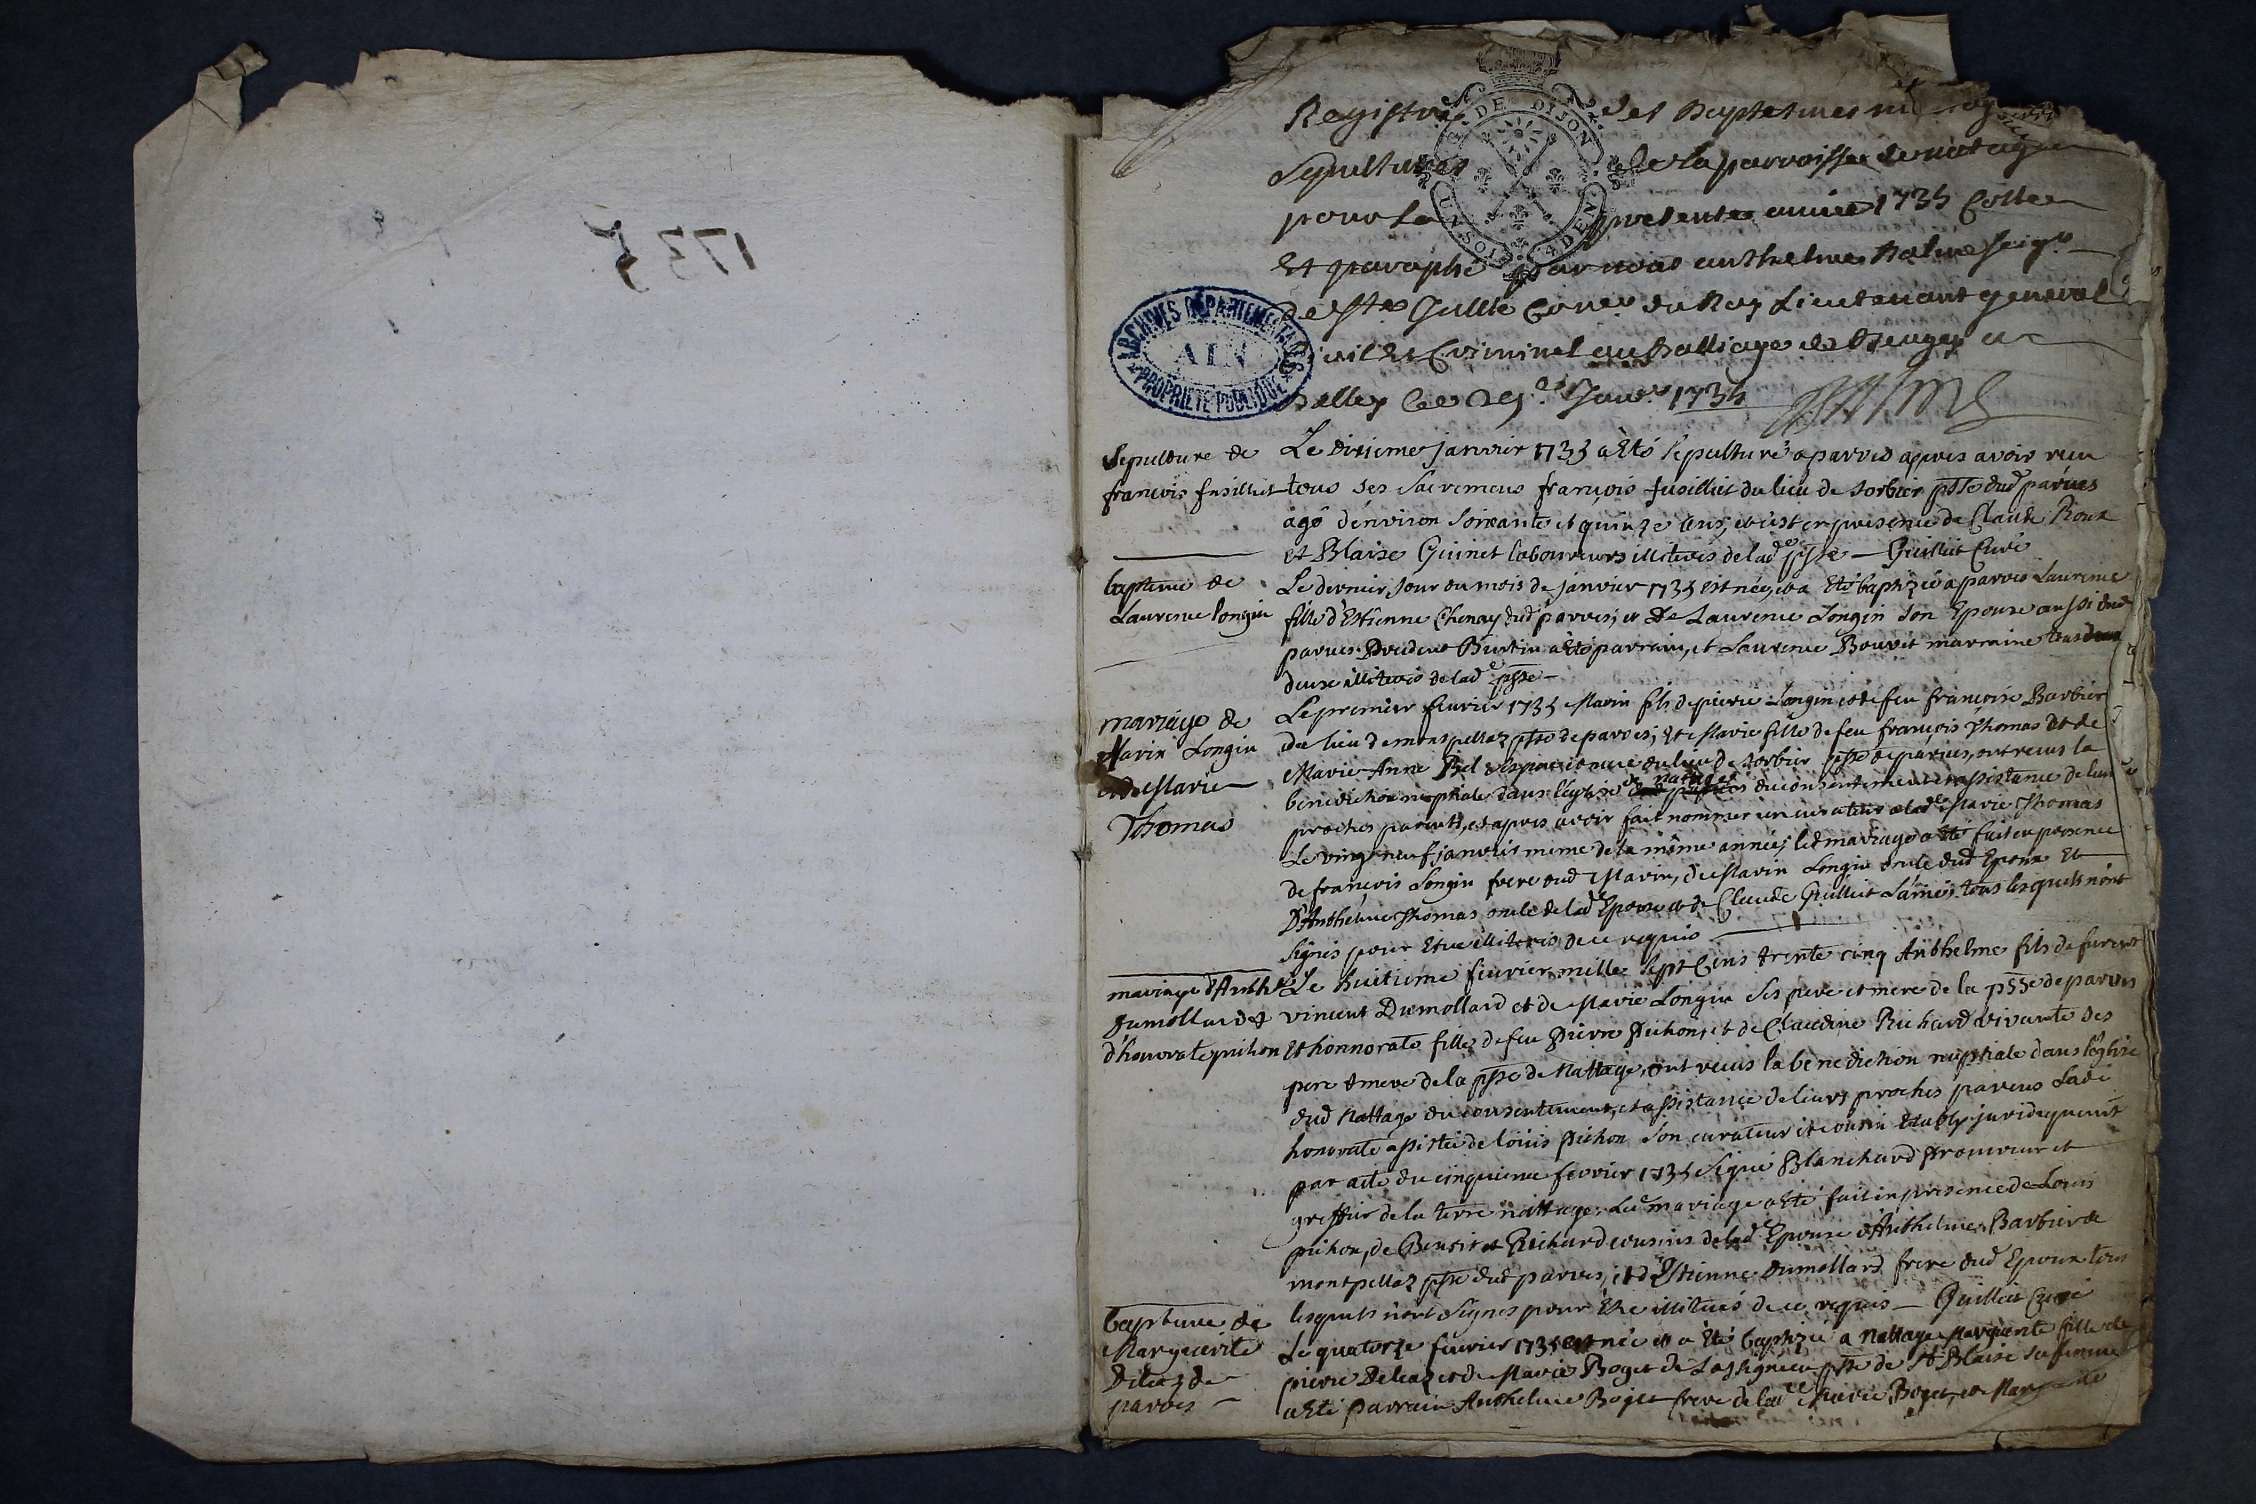 1735
Registre des Baptesmes et
Sepultures de la parroisse de natage
pour La presente année 1735 Cottée
Et paraphé par nous anthelme Balme Seigr
de Ste Jullie Conser du Roy Lieutenant general
Civil Et Criminel au Balliage de Beugey a
Belley Ce Janer 1735
GNE DE DIJON
UN SOL 4 DEN
ARCHIVES DÉPARTEMENTALES
AIN
PROPRIÉTÉ PUBLIQUE
Sepulture de
françois fusilliet
Le dixieme janvier 1735 a Eté sepulturé a parves apres avoir reçu
tous ses Sacremens françois fusilliet du lieu de Sorbier psse dud parves
agé d'environ soixante et quinze ans, et c'est en presence de Claude Roux
et Blaise Guinet laboureurs illiterés de lade psse — Guilliet Curé
baptême de
Laurence longin
Le dernier Jour du mois de janvier 1735 est née, et a Eté baptizée a parves Laurence
fille d'Estienne Chenay dud parves, et De Laurence Longin son Epouse aussi dud
parves Prudent Burtin a Eté parrain, et Laurence Bouvet marraine tous deux
deux illiterés de lade psse —
mariage de
Marin Longin
et de Marie
Thomas
Le premier fevrier 1735 Marin fils de pierre Longin et de feu françoise Barbier
du lieu de montpellaz psse de parves, Et Marie fille de feu françois Thomas Et de
Marie Anne Bel ses pere et mere du lieu de sorbier psse de parves, ont reçus la
benediction nuptiale dans l'eglise de nattages du consentement et assistance de leurs
proches parents, et apres avoir fait nommer un curateur a lade Marie Thomas
Le vingt neuf janvier meme de la même année, led mariage a Eté fait en presence
de françois Longin frere dud Marin, de Marin Longin oncle dud Epoux Et
D'Anthelme Thomas oncle de lade Epouse et de Claude Guilliet L'aîné tous lesquels n'ont
signés pour Etre illiterés de ce requis
mariage d'Anthe
Dumollard et
d'honorate pichon
Le huitieme fevrier mille sept Cens trente cinq Anthelme fils de
vincent Dumollard et de Marie Longin ses pere et mere de la psse de parves
Et honnorate fille de feu Pierre Pichon, et de Claudine Richard vivante ses
pere et mere de la psse de Nattage, ont reçus la benediction nuptiale dans l'eglise
dud Nattage du consentement, et assistance de leurs proches parens Lade
honorate assistée de loüis pichon son curateur et cousin Etably juridiquement
par acte du cinquieme fevrier 1735 signé Blanchard Procureur et
greffier de la terre nattage, Led mariage a Eté fait en presence de Louis
pichon, de Benoit Richard cousins de lade Epouse d'Anthelme Barbier de
montpellaz psse dud parves, et d'Estienne dumollard frere dud Epoux tous
lesquels n'ont signés pour Etre illiterés de ce requis — Guilliet Curé
baptême de
Marguerite
Deleaz de
parves
Le quatorze fevrier 1735 est née et a Eté baptizée a Nattage Marguerite fille de
pierre Deleaz et de Marie Boget de Lassignieu psse de St Blaise sa femme
a Eté parrain Anthelme Boget frere de lade Marie Boget, et Marguerite